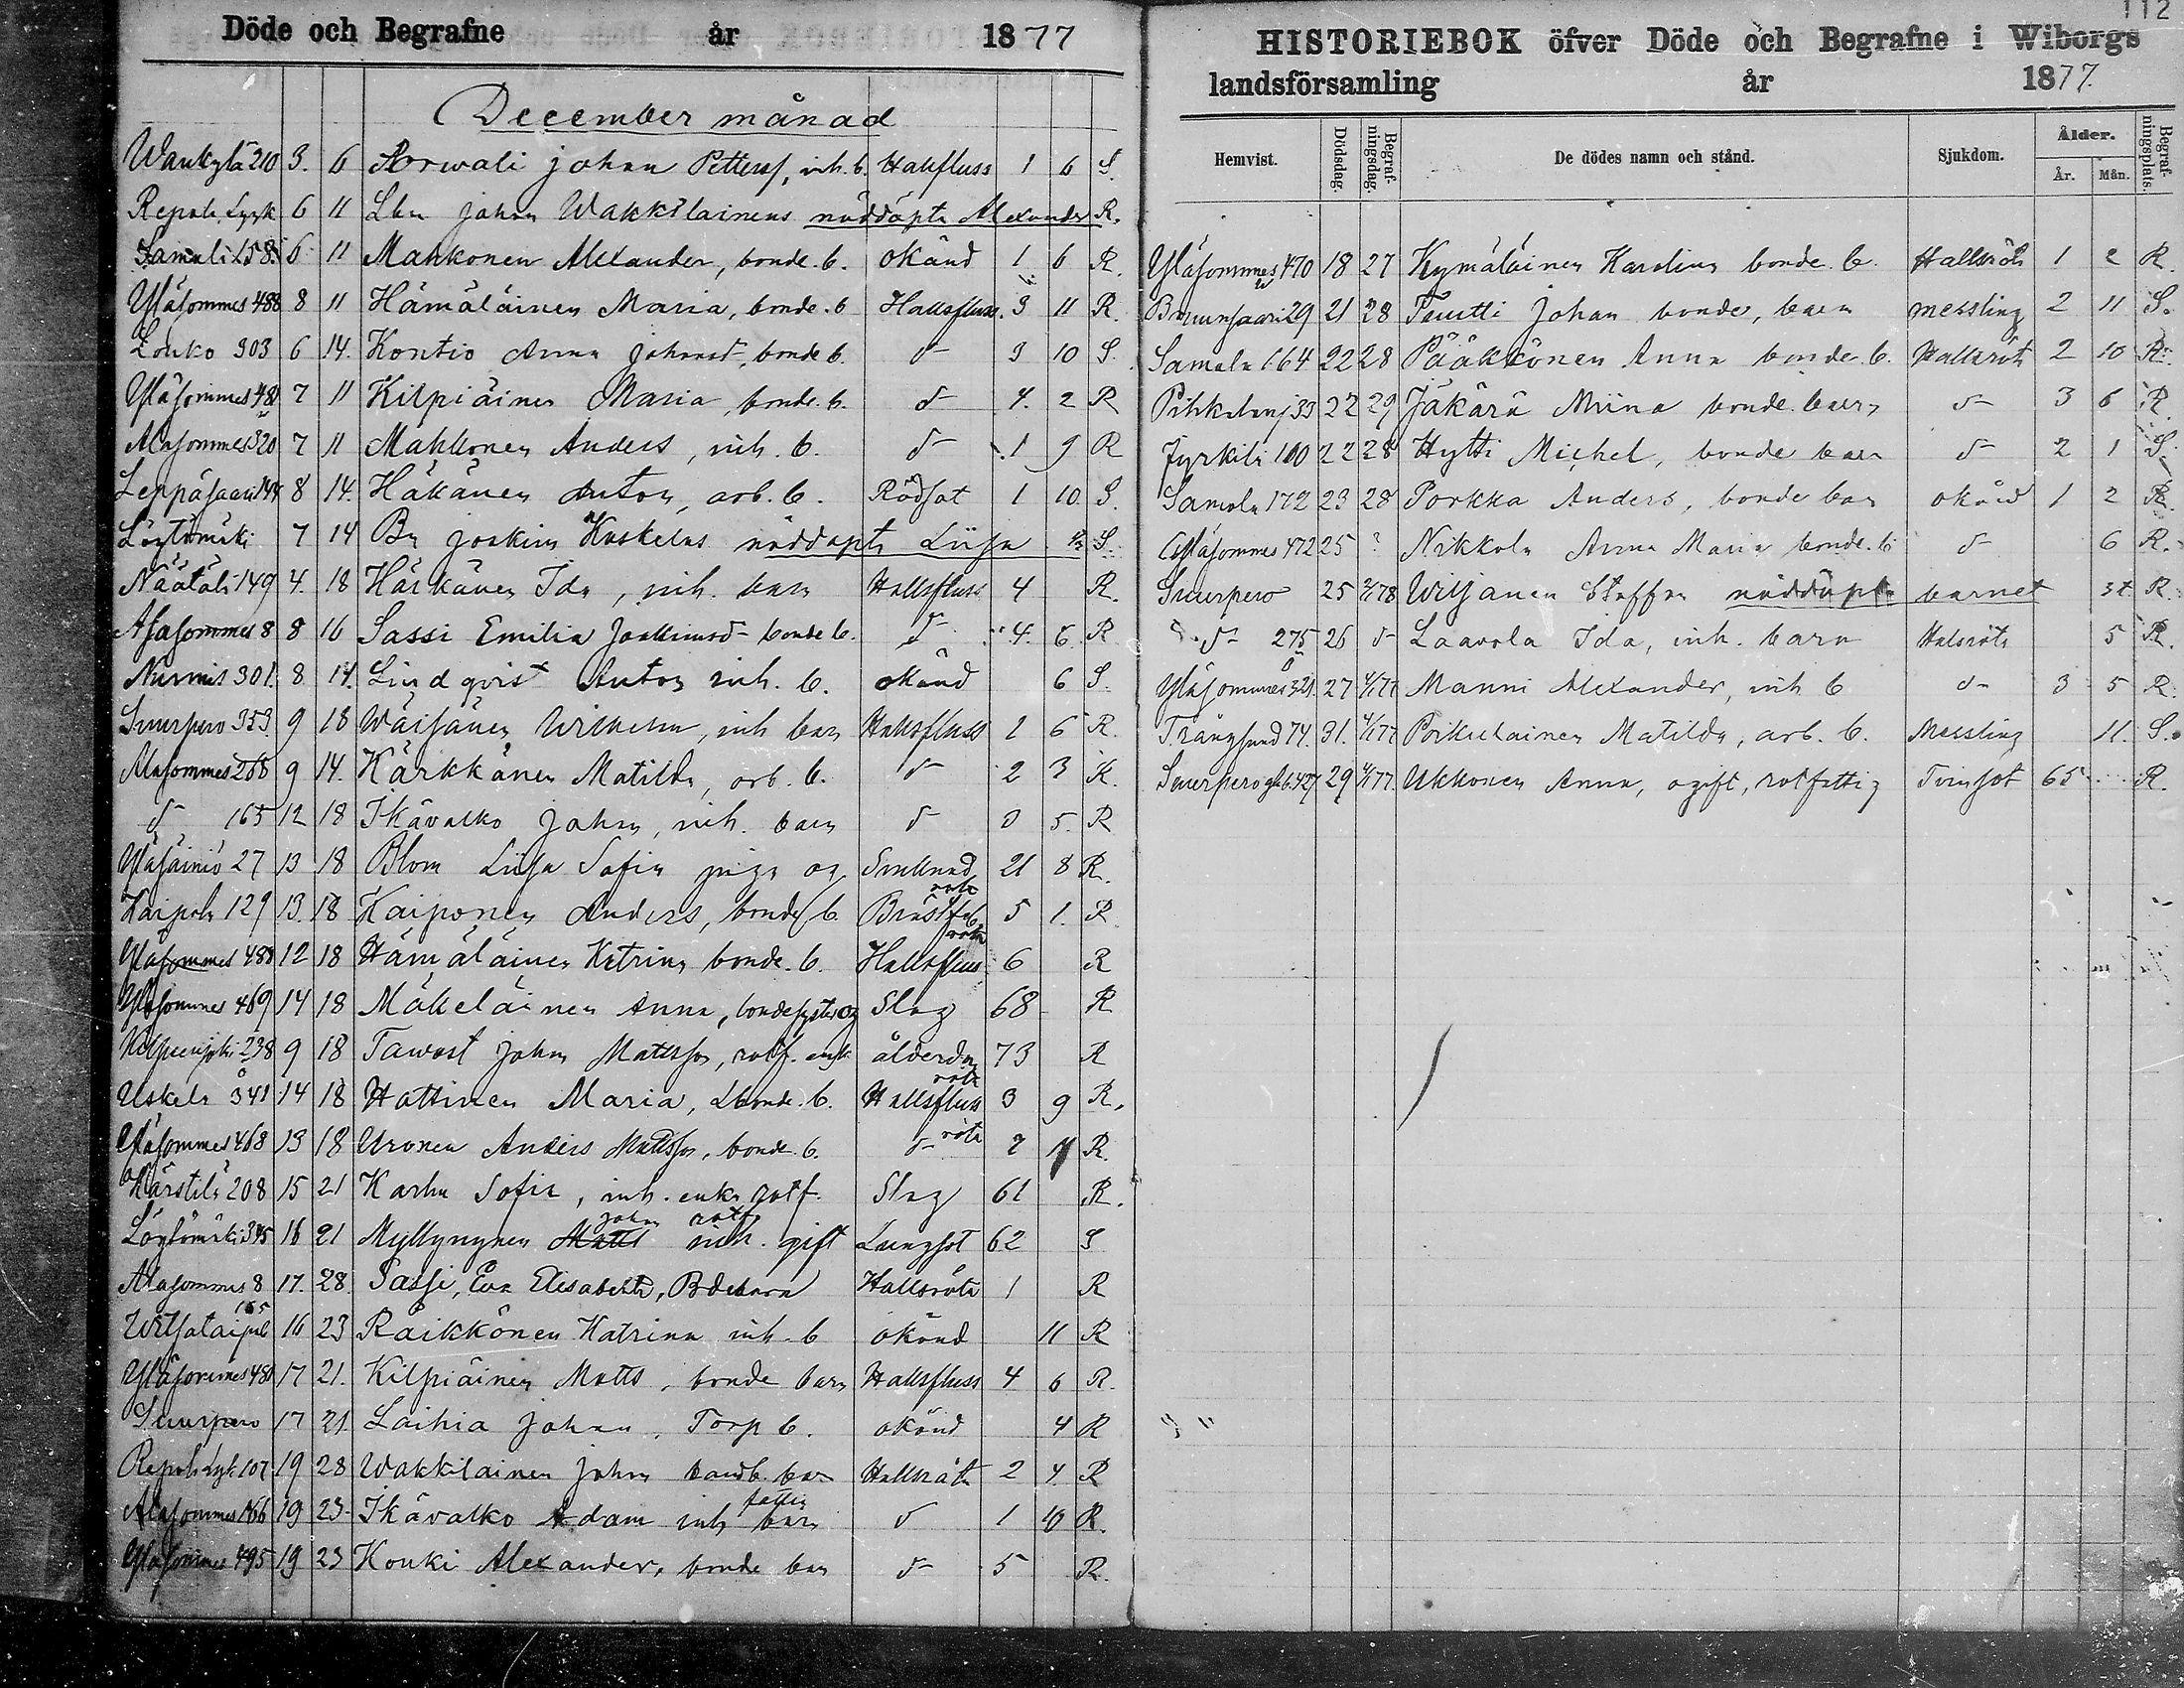 Döde och Begrafne år 1877
December månad
Wankylä 210 3. 6 Aorwali johan Petterss, inh. b. Halsfluss 1 6 S.
Repola Lyyk 6 11 Lbn johan Wakkilainens nöddöpta Alexander R.
Samuli 158 6 11 Mahkonen Alexander, bonde. b. okänd 1 6 R.
Yläsommes 488 8 11 Hämäläinen Maria, bonde. b Halsfluss. 3 11 R.
Louko 303 6 14. Kontio Anna johansd bonde b. d- 3 10 S.
Yläsommes 481 7 11 Kilpiäinen Maria bonde. b. d- 4. 2 R
Alasommes 320 7 11 Mahkonen Anders, inh. b. d- 1 9 R
Leppäsaari 144 8 14. Häkänen Anton, arb. b. Rödsot 1 10. S.
Löytömäki 7 14 Bn joakim Kaskelas nöddöpta Liisa S.
Näätälä 149 4. 18 Härkänen Ida, inh. barn Halsfluss 4 R.
Alasommes 8 8 16 Sassi Emilia Joakimsd- bonde b. d- 4. 6. R
Nurmis 301. 8 14. Lindqvist Anton inh. b. okänd 6 S.
Suurpero 353. 9 18 Wäisänen Wilhelm, inh barn Halsfluss 2 6 R.
Alasommes 268 9 14. Kärkkänen Matilda, arb. b. d- 2 3 R.
d- 165 12 18 Ikävalko Johan, inh. barn d- 0 5. R
Yläsäiniö 27 13 18 Blom Liisa Sofia piga og. 21 8 R.
Kaipola 129 13. 18 Kaiponen Anders, bonde b. 5 1. R
Yläsommes 488 12 18 Hämäläinen Katrina bonde. b. Halsfluss röta 6 R
Yläsommes 469 14 18 Mäkeläinen Anna, bondesyster og Slag 68 R
Kilpeenjoki 238 9 18 Tawast johan Mattsson, rotf. enk ålderdom 73 R
Uskela 341 14 18 Hattinen Maria, Lbonde. b. Halsfluss röta 3 9 R.
Yläsommes 468 13 18 Uronen Anders Mattsson, bonde. b. d- röta 2 7 R.
Kärstilä 208 15 21 Karhu Sofia, inh. enka rotf. Slag 61 R.
Löytömäki 345 16 21 Myllynynen Matts johan inh. rotf gift Lungsot 62 S
Alasommes 8 17. 28. Sassi, Eva Elisabeth, Bdebarn Halsröta 1 R
Wilsataipal 165 16 23 Räikkönen Katrina inh. b okänd 11 R
Yläsommes 481 17 21. Kilpiäinen Matts, bonde barn Halsfluss 4 6 R.
Suurpero 17 21. Laihia johan, Torp b. okänd 4 R
Repola Lyk. 107 19 28 Wakkilainen johan bar Halsröta 2 4. R
Alasommes 166 19 23 Ikävalko Adam inh fattig barn d- 1 10 R.
Yläsommes 495 19 23 Kouki Alexander, bonde barn d- 5 R.
112
HISTORIEBOK öfver Döde och Begrafne i Wiborgs
landsförsamling år 1877.
Hemvist. Dödsdag. Begrafningsdag. De dödes namn och stånd. Sjukdom. Ålder. År. Mån. Begrafningsplats.
Yläsommes 470 18 27 Kymäläinen Karolina bonde. b. Halsröta 1 2 R
Bruunsaari 29 21 28 Tuutti Johan bonde, barn messling 2 11 S.
Samola 164 22 28 Pääkkönen Anna bonde. b. Halsröta 2 10 R.
Pihkalanj 33 22 29 Jäkärä Miina bonde. barn d- 3 6 R.
Jyrkilä 100 22 28 Hytti Michel, bonde barn d- 2 1 S.
Samola 172 23 28 Porkka Anders, bonde bar okänd 1 2 R.
Yläsommes 472 25 ? Nikkola Anna Maria bonde. b d- 6 R.
Suurpero 25 2/1 78 Wiljanen Staffan nöddöpta barnet 3t R.
d- 275 26 d- Laavola Ida, inh. barn Halsröta 5 R.
Yläsommes 321. 27 4/1 77 Manni Alexander, inh b d- 3 5 R
Trångsund 74. 31. 4/1 77 Poikulainen Matilda, arb. b. Messling 11. S.
Suurpero 427 29 4/1 77. Ukkonen Anna, ogift, rotfattig Tvinsot 65 R.